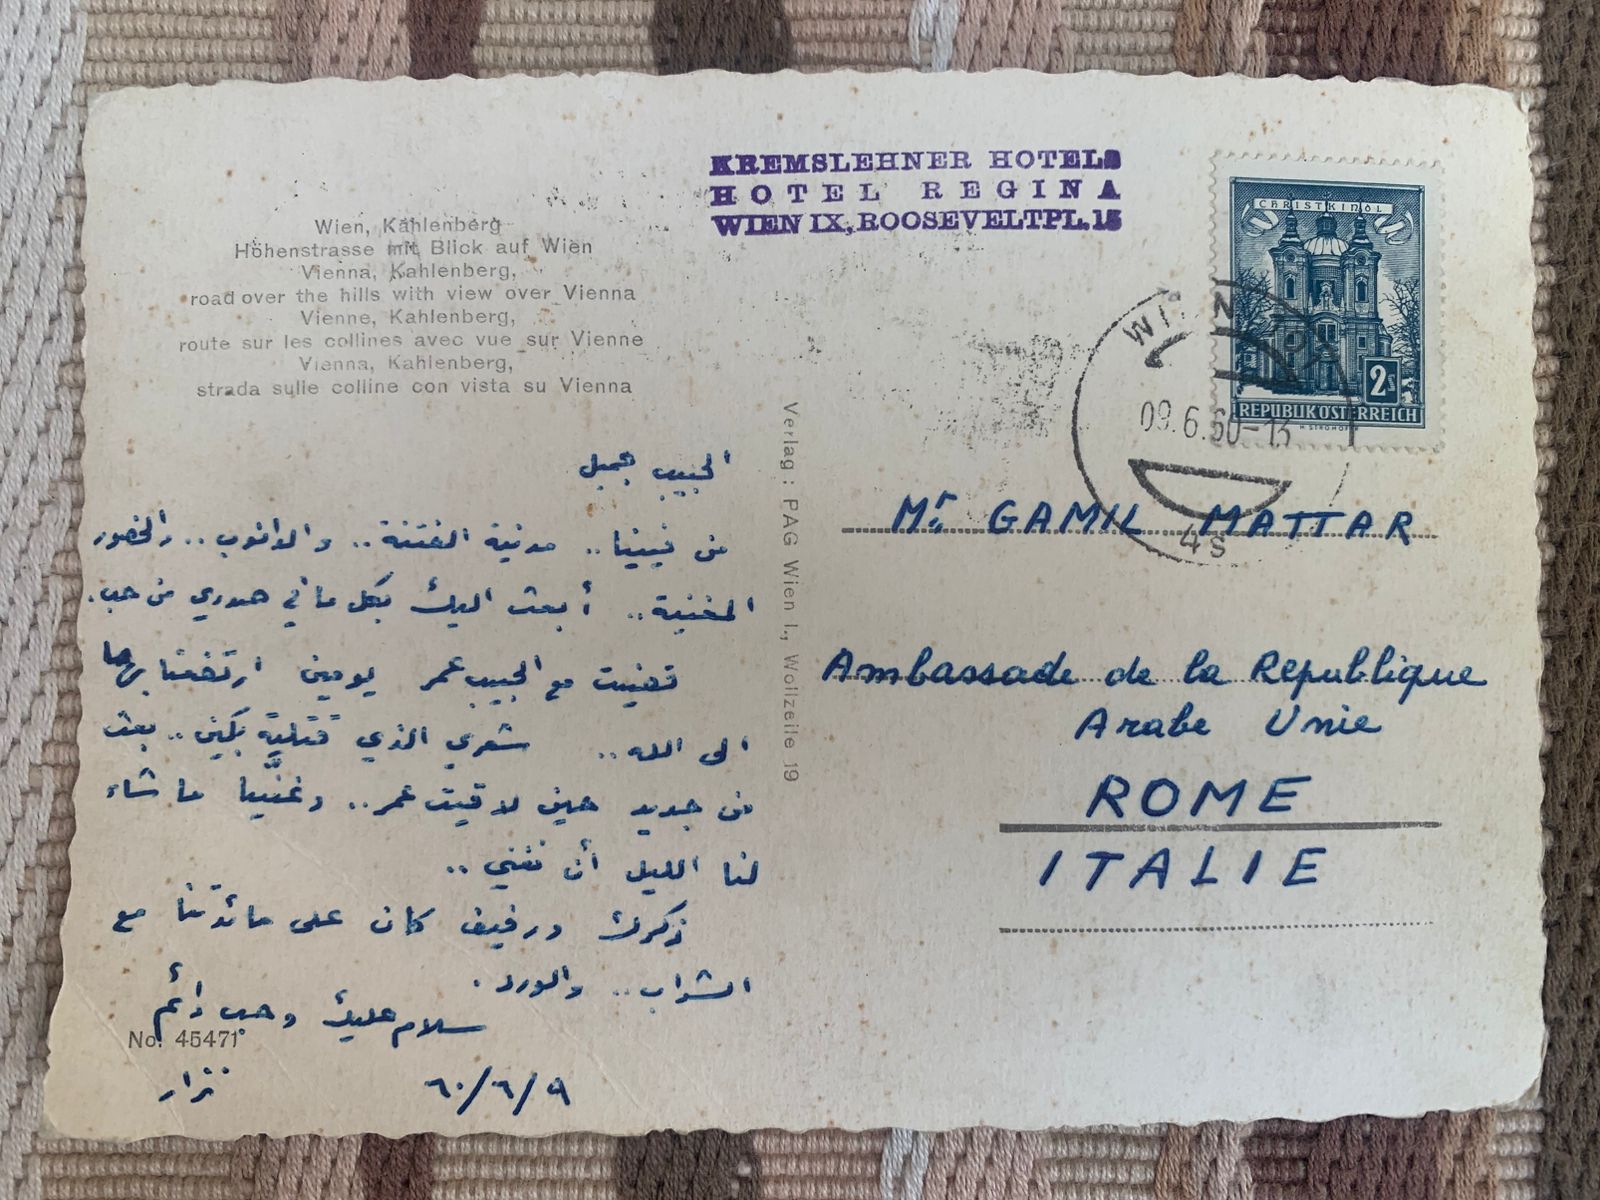 KREMSLEHNER HOTELS
HOTEL REGINA
WIEN IX, ROOSEVELTPL. 15
Wien, Kahlenberg
Höhenstrasse mit Blick auf Wien
Vienna, Kahlenberg,
road over the hills with view over Vienna
Vienne, Kahlenberg,
route sur les collines avec vue sur Vienne
Vienna, Kahlenberg,
strada sulle colline con vista su Vienna
CHRISTKINDL
2s
REPUBLIK ÖSTERREICH
WIEN
09.6.60-13
4s
Verlag: PAG Wien I., Wollzeile 19
الحبيب جميل
من فيينا.. مدينة الفتنة.. والدانوب.. والخصور
المغنية.. أبعث اليك بكل ما في صدري من حب.
تغنيت مع الحبيب عمر يومين ارتفعنا بهما
الى الله.. شعري الذي قتلته بكين.. بعث
من جديد حين لاقيت عمر.. وغنينا ما شاء
لنا الليل أن نغني..
ذكرك ورفيف كان على مائدتنا مع
الشراب.. والورد.
سلام عليك وحب دائم
نزار
٦٠/٦/٩
No. 45471
Mr. GAMIL MATTAR
Ambassade de la Republique
Arabe Unie
ROME
ITALIE